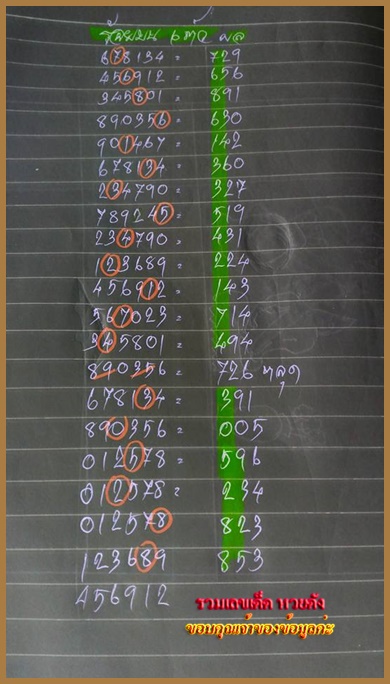 รูดสิบบน 6 ตัว ผล
678134 = 729
456912 = 656
345801 = 891
890356 = 630
901467 = 142
678134 = 360
234790 = 327
789245 = 519
234790 = 431
123689 = 224
456912 = 143
567023 = 714
345801 = 494
890356 = 726 หลุด
678134 = 391
890356 = 005
012578 = 596
012578 = 234
012578 = 823
123689 = 853
456912
รวมเลขเด็ด หวยดัง
ขอบคุณเจ้าของข้อมูลค่ะ